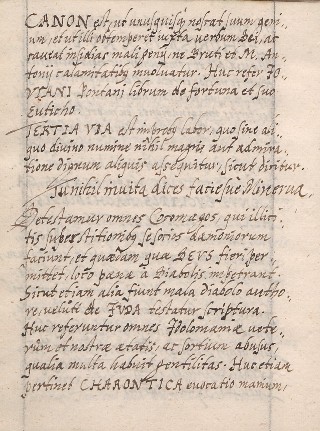 CANON est, ut unusquisq; noscat suum geni-
um, et utilli obtemperet iuxta verbum Dei, ac
caveat insidias mali genij, ne Bruti et M. An-
tonij calamitatibq involvatur. Huc refer IO-
VIANI Pontani librum de fortuna et suo
Euticho.
TERTIA VIA est improbq labor, quo sine ali-
quo divino numine nihil magni aut admira-
tione dignum aliquis assequitur, sicut dicitur.
Tu nihil invita dices faciesve Minerva,
Detestamur omnes Cacomagos, qui illici-
tis superstitionibq se socios daemoniorum
faciunt, et quaedam quae DEUS fieri per-
mittet, loco panae a Diabolis impetrant.
Sicut etiam alia fiunt mala Diabolo autho-
re, veluti de JUDA testatur scriptura.
Huc referuntur omnes Idolomaniae vete-
rum et nostrae aetatis, ac sortium abusus,
qualia multa habuit gentilitas. Huc etiam
pertinet CHARONTICA evocatio manium,